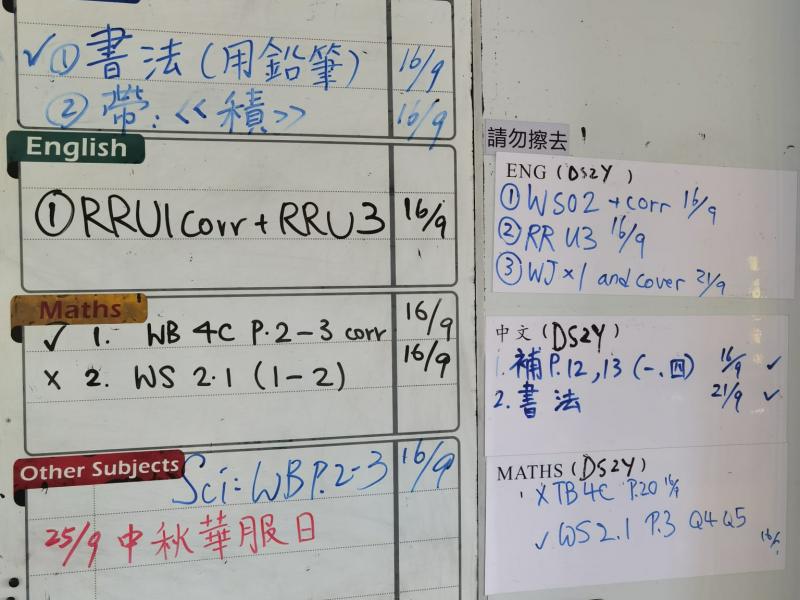 ✓ ① 書法 (用鉛筆) 16/9
② 帶:<<積>> 16/9
English
① RRU1 corr + RRU3 16/9
Maths
✓ 1. WB 4C P.2-3 corr 16/9
x 2. WS 2.1 (1-2) 16/9
Other Subjects
Sci: WB P.2-3 16/9
25/9 中秋華服日
請勿擦去
ENG (DS2Y)
① WS02 + corr 16/9
② RR U3 16/9
③ WJ x 1 and cover 21/9
中文 (DS2Y)
1. 補 P.12, 13 (一、四) 16/9 ✓
2. 書法 21/9 ✓
MATHS (DS2Y)
x TB 4C P.20 16/9
✓ WS 2.1 P.3 Q4 Q5